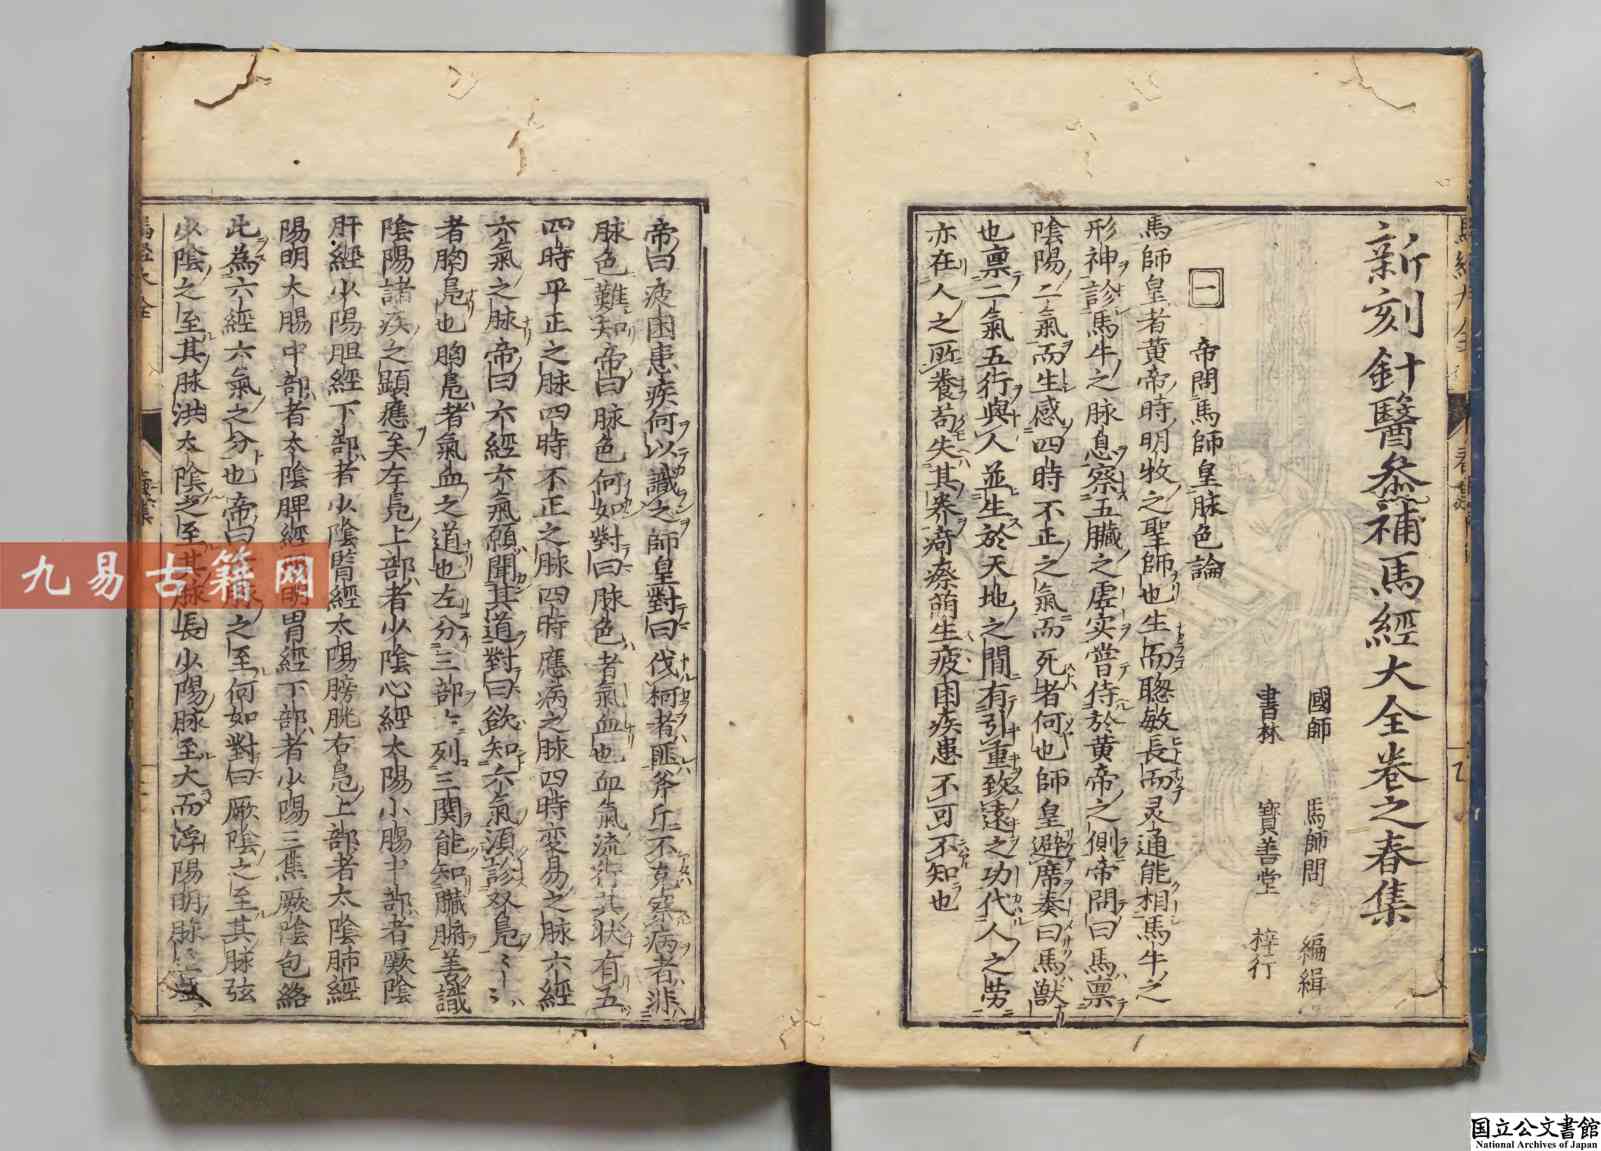 新刻針醫參補馬經大全卷之春集
國師 馬師問 編緝
書林 寶善堂 梓行
一 帝問馬師皇脉色論
馬師皇者黃帝時明牧之聖師也生而聰敏長而灵通能相馬牛之
形神診馬牛之脉息察五臟之虛实嘗侍於黃帝之側帝問曰馬稟
陰陽二氣而生感四時不正之氣而死者何也師皇避席奏曰馬獸
也稟二氣五行與人並生於天地之間有引重致遠之功代人之劳
亦在人之所養苟失其养 瘵萠生疲困疾患不可不知也
帝曰疲困患疾何以識之師皇對曰伐柯者匪斧斤不克察病者非
脉色難知帝曰脉色何如對曰脉色者氣血也血氣流行其状有五
四時平正之脉四時不正之脉四時應病之脉四時变易之脉六經
六氣之脉帝曰六經六氣願聞其道對曰欲知六氣須診双鳧
者胸鳧也胸鳧者氣血之道也左分三部々列三関能知臟腑善識
陰陽諸疾之顕應矣左鳧上部者少陰心經太陽小腸中部者厥陰
肝經少陽胆經下部者少陰腎經太陽膀胱右鳧上部者太陰肺經
陽明大腸中部者太陰脾經陽明胃經下部者少陽三焦厥陰包絡
此為六經六氣之分也帝曰 脉之至何如對曰厥陰之至其脉弦
少陰之至其脉洪太陰之至其脉長少陽脉至大而浮陽明脉
国立公文書館
National Archives of Japan
九易古籍网